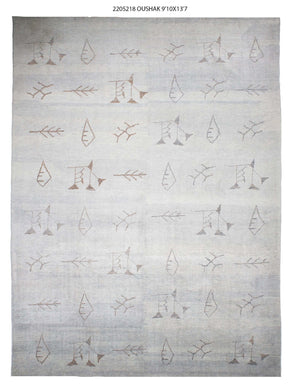 2205218 OUSHAK 9'10X13'7